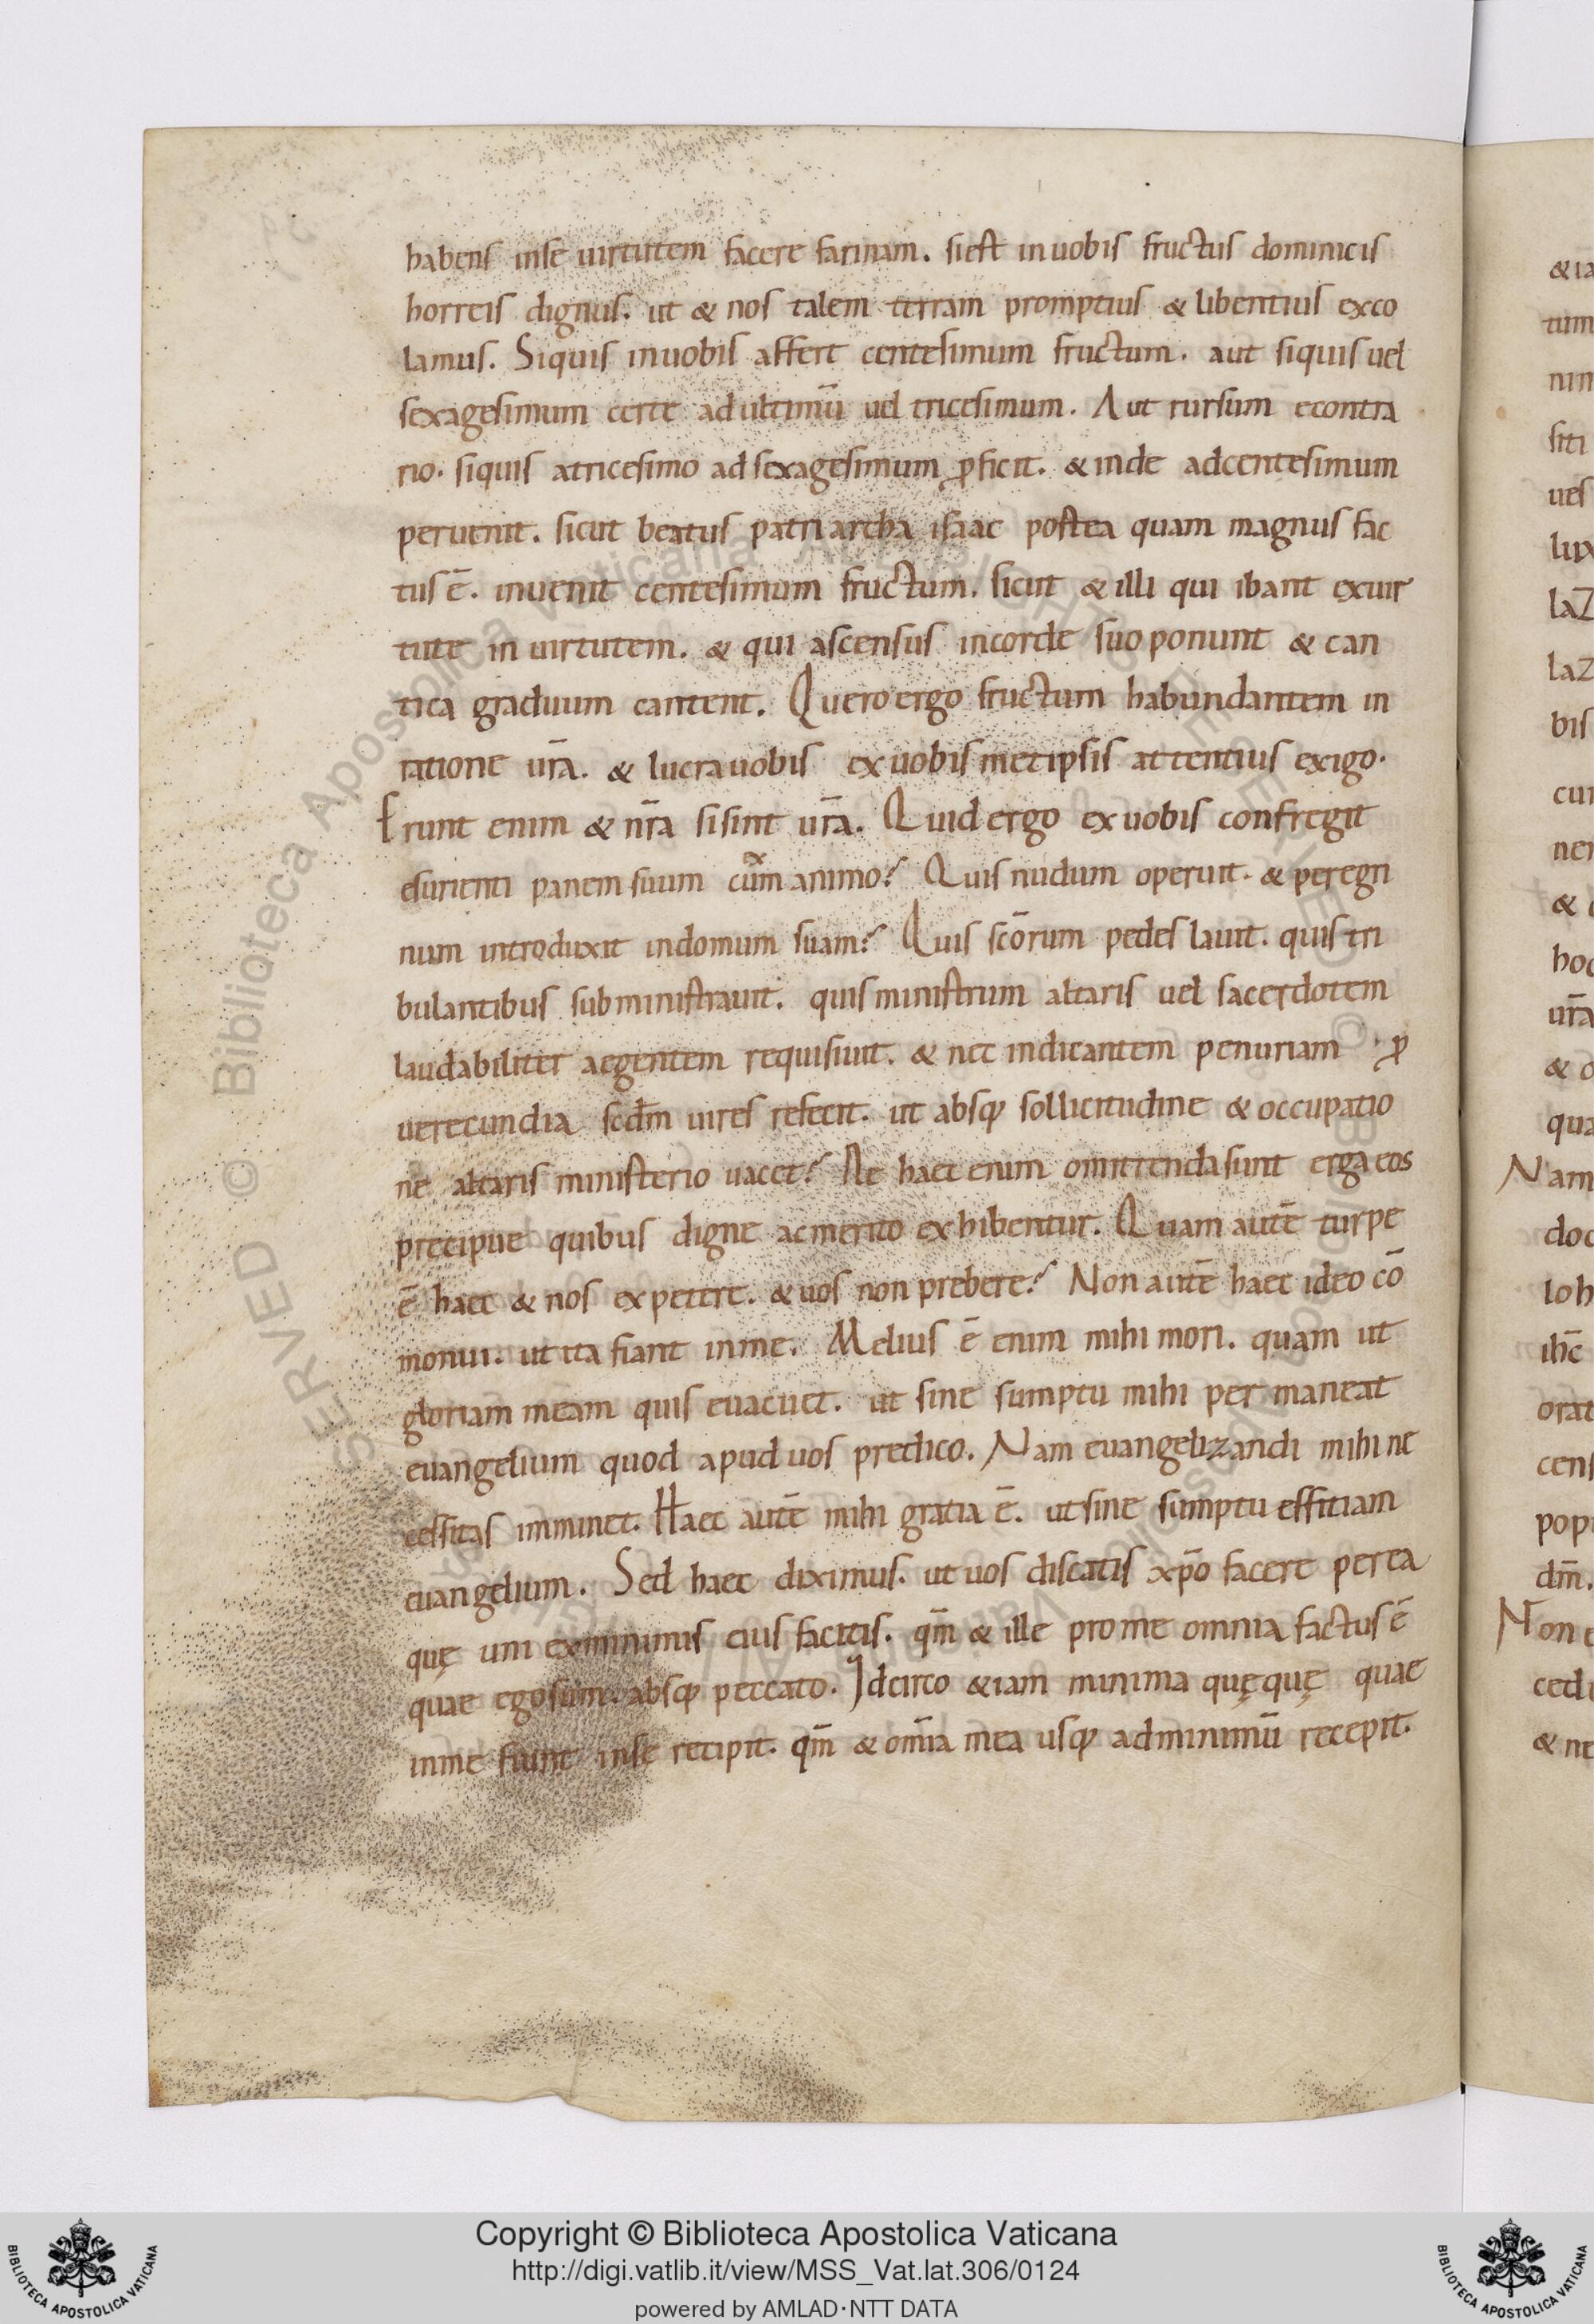 habens inse uirtutem facere farinam. siest inuobis fructus dominicis
horreis dignus. ut & nos talem terram promptius & libentius exco
lamus. Siquis inuobis affert centesimum fructum. aut siquis uel
sexagesimum certe ad ultimū uel tricesimum. Aut rursum econtra
rio. siquis atricesimo ad sexagesimum ꝓficit. & inde adcentesimum
peruenit. sicut beatus patriarcha isaac postea quam magnus fac
tus ē. inuenit centesimum fructum. sicut & illi qui ibant exuir
tute in uirtutem. & qui ascensus incorde suo ponunt & can
tica graduum cantent. Quero ergo fructum habundantem in
ratione ur̄a. & lucra uobis ex uobis metipsis attentius exigo.
Erunt enim & nr̄a sisint ur̄a. Quid ergo ex uobis confregit
esurienti panem suum cum animo? Quis nudum operuit. & peregri
num introduxit indomum suam? Quis scōrum pedes lauit. quis tri
bulantibus subministrauit. quis ministrum altaris uel sacerdotem
laudabiliter aegentem requisiuit. & nec indicantem penuriam ꝓ
uerecundia scdm̄ uires refecit. ut absq; sollicitudine & occupatio
ne altaris ministerio uacet? Ne haec enim omittenda sunt erga eos
precipue quibus digne acmerito exhibentur. Quam autē turpe
ē haec & nos expetere. & uos non prebere? Non autē haec ideo cō
monui. ut ita fiant inme. Melius ē enim mihi mori. quam ut
gloriam meam quis euacuet. ut sine sumptu mihi per maneat
euangelium quod apud uos predico. Nam euangelizandi mihi ne
cessitas imminet. Haec autē mihi gratia ē. ut sine sumptu effitiam
euangelium. Sed haec diximus. ut uos discatis xp̄o facere per ea
quę uni exminimis eius facitis. qm̄ & ille pro me omnia factus ē
quae ego sum. absq; peccato. Idcirco &iam minima quęquę quae
inme fiunt inse recipit. qm̄ & om̄ia mea usq; adminimū recepit.
& ia
tum
nim
siti
ues
lux
laz
laz
bis
cui
nei
& c
hoc
ur̄a
& o
qua
Nam
doc
loh
ih̄c
orat
cens
pop
dm̄.
Non e
cedi
& ne
© Biblioteca Apostolica Vaticana
Copyright © Biblioteca Apostolica Vaticana
http://digi.vatlib.it/view/MSS_Vat.lat.306/0124
powered by AMLAD·NTT DATA
BIBLIOTECA APOSTOLICA VATICANA
BIBLIOTECA APOSTOLICA VATICANA